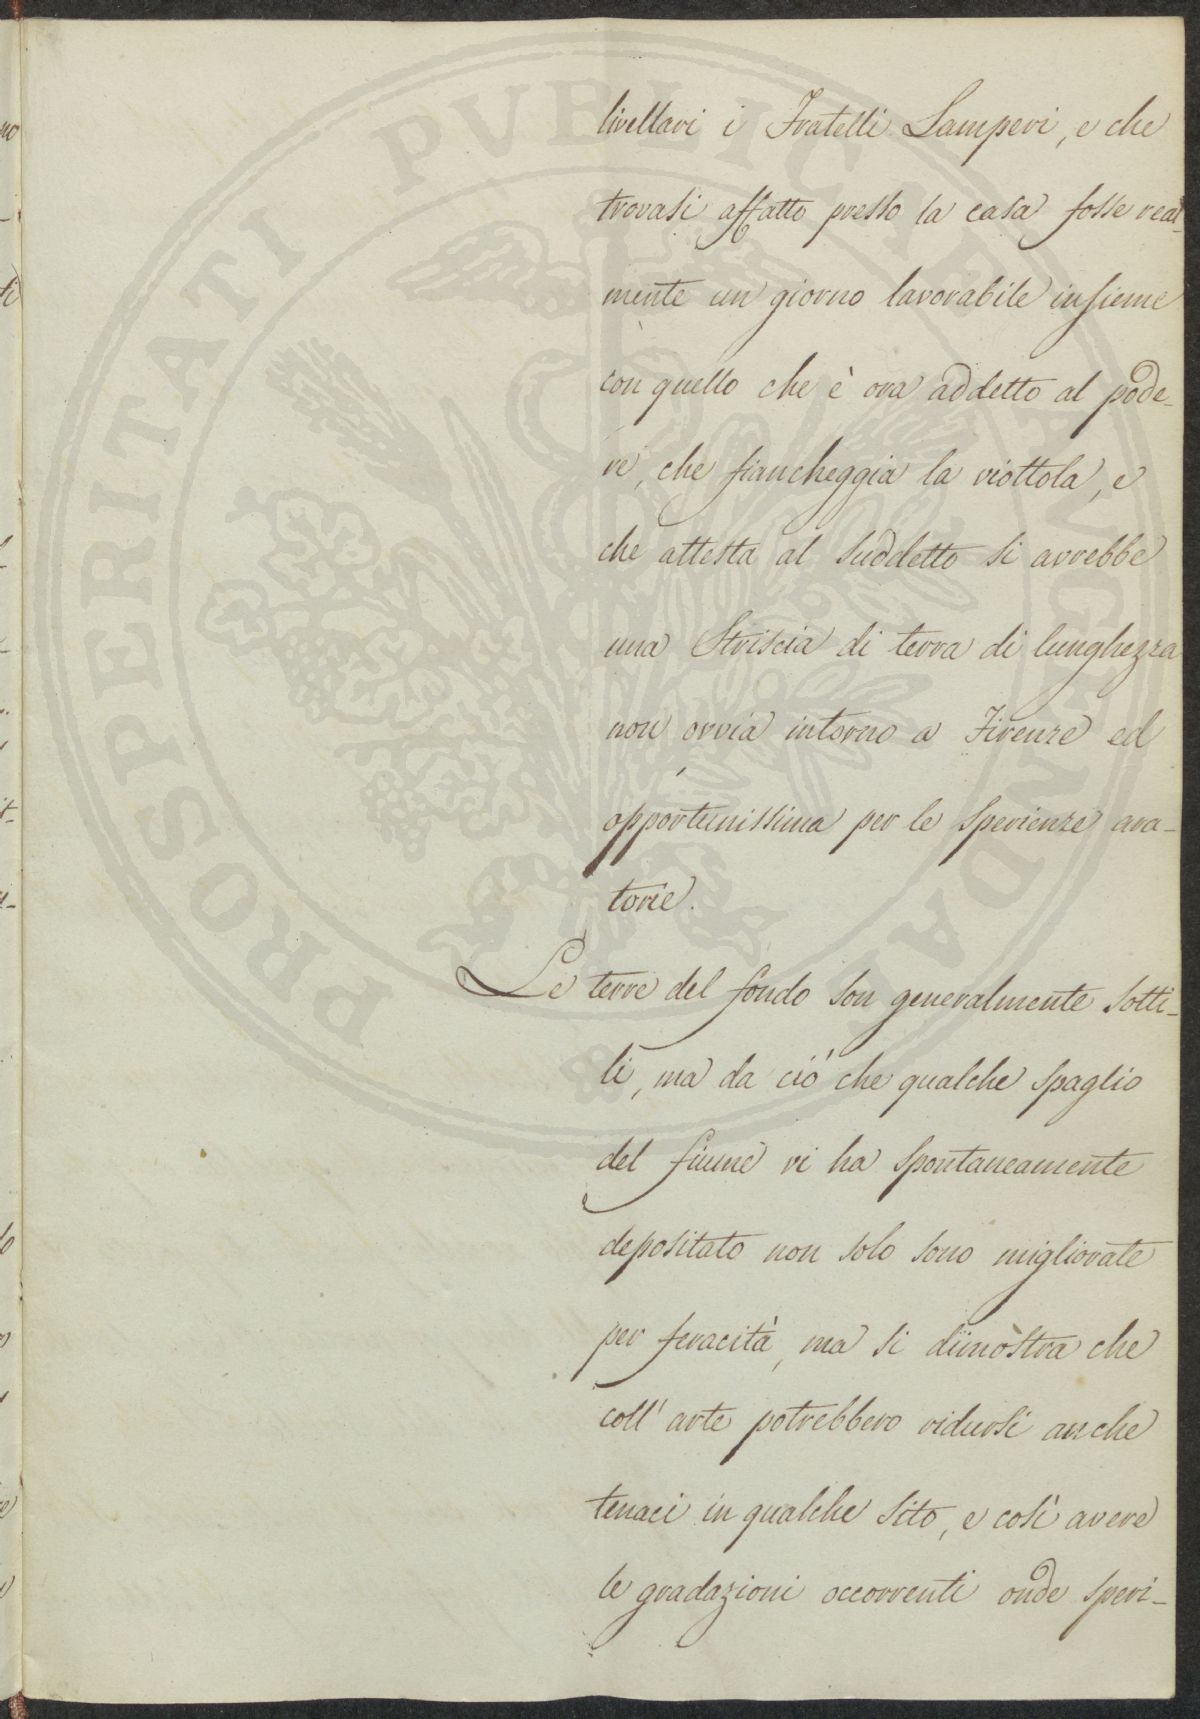 livellari i Fratelli Lamperi, e che
trovasi affatto presso la casa fosse real-
mente un giorno lavorabile insieme
con quello che è ora addetto al pode-
re, che fiancheggia la viottola, e
che attesta al suddetto si avrebbe
una striscia di terra di lunghezza
non ovvia intorno a Firenze ed
opportunissima per le sperienze ara-
torie.
Le terre del fondo son generalmente sotti-
li, ma da ciò che qualche spaglio
del fiume vi ha spontaneamente
depositato non solo sono migliorate
per feracità, ma si dimostra che
coll' arte potrebbero ridursi anche
tenaci in qualche sito, e così avere
le gradazioni occorrenti onde speri-
PROSPERITATI PUBLICAE AUGENDAE